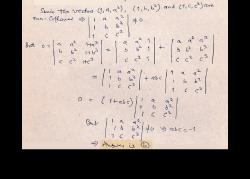 Since the vectors (1, a, a²), (1, b, b²) and (1, c, c²) are
non-coplanar ⇒ | 1 a a² ; 1 b b² ; 1 c c² | ≠ 0
But 0 = | a a² 1+a³ ; b b² 1+b³ ; c c² 1+c³ | = | a a² 1 ; b b² 1 ; c c² 1 | + | a a² a³ ; b b² b³ ; c c² c³ |
= | 1 a a² ; 1 b b² ; 1 c c² | + abc | 1 a a² ; 1 b b² ; 1 c c² |
0 = (1+abc) | 1 a a² ; 1 b b² ; 1 c c² |
But | 1 a a² ; 1 b b² ; 1 c c² | ≠ 0 ⇒ abc = -1
⇒ Answer is (b)